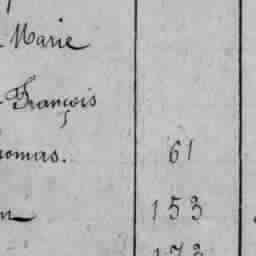 Marie
François
homas. 61
153
173